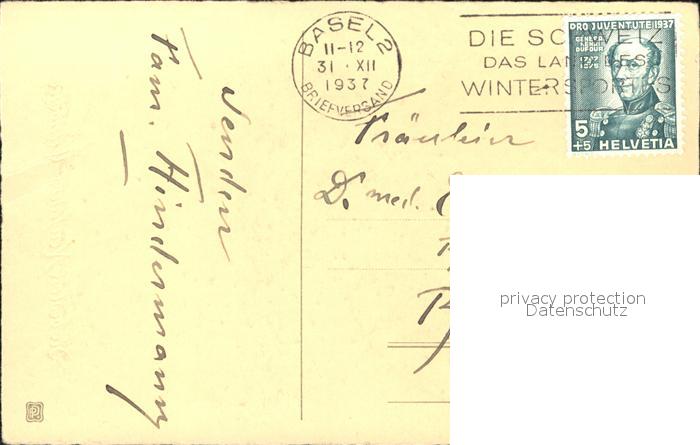 BASEL 2
11-12
31. XII
1937
BRIEFVERSAND
DIE SCHWEIZ
DAS LAND DES
WINTERSPORTES
PRO JUVENTUTE 1937
GENERAL
HENRI
DUFOUR
1787
1875
5
+5 HELVETIA
senden
Fam. Hindermann
Fräulein
Dr. med.
privacy protection
Datenschutz